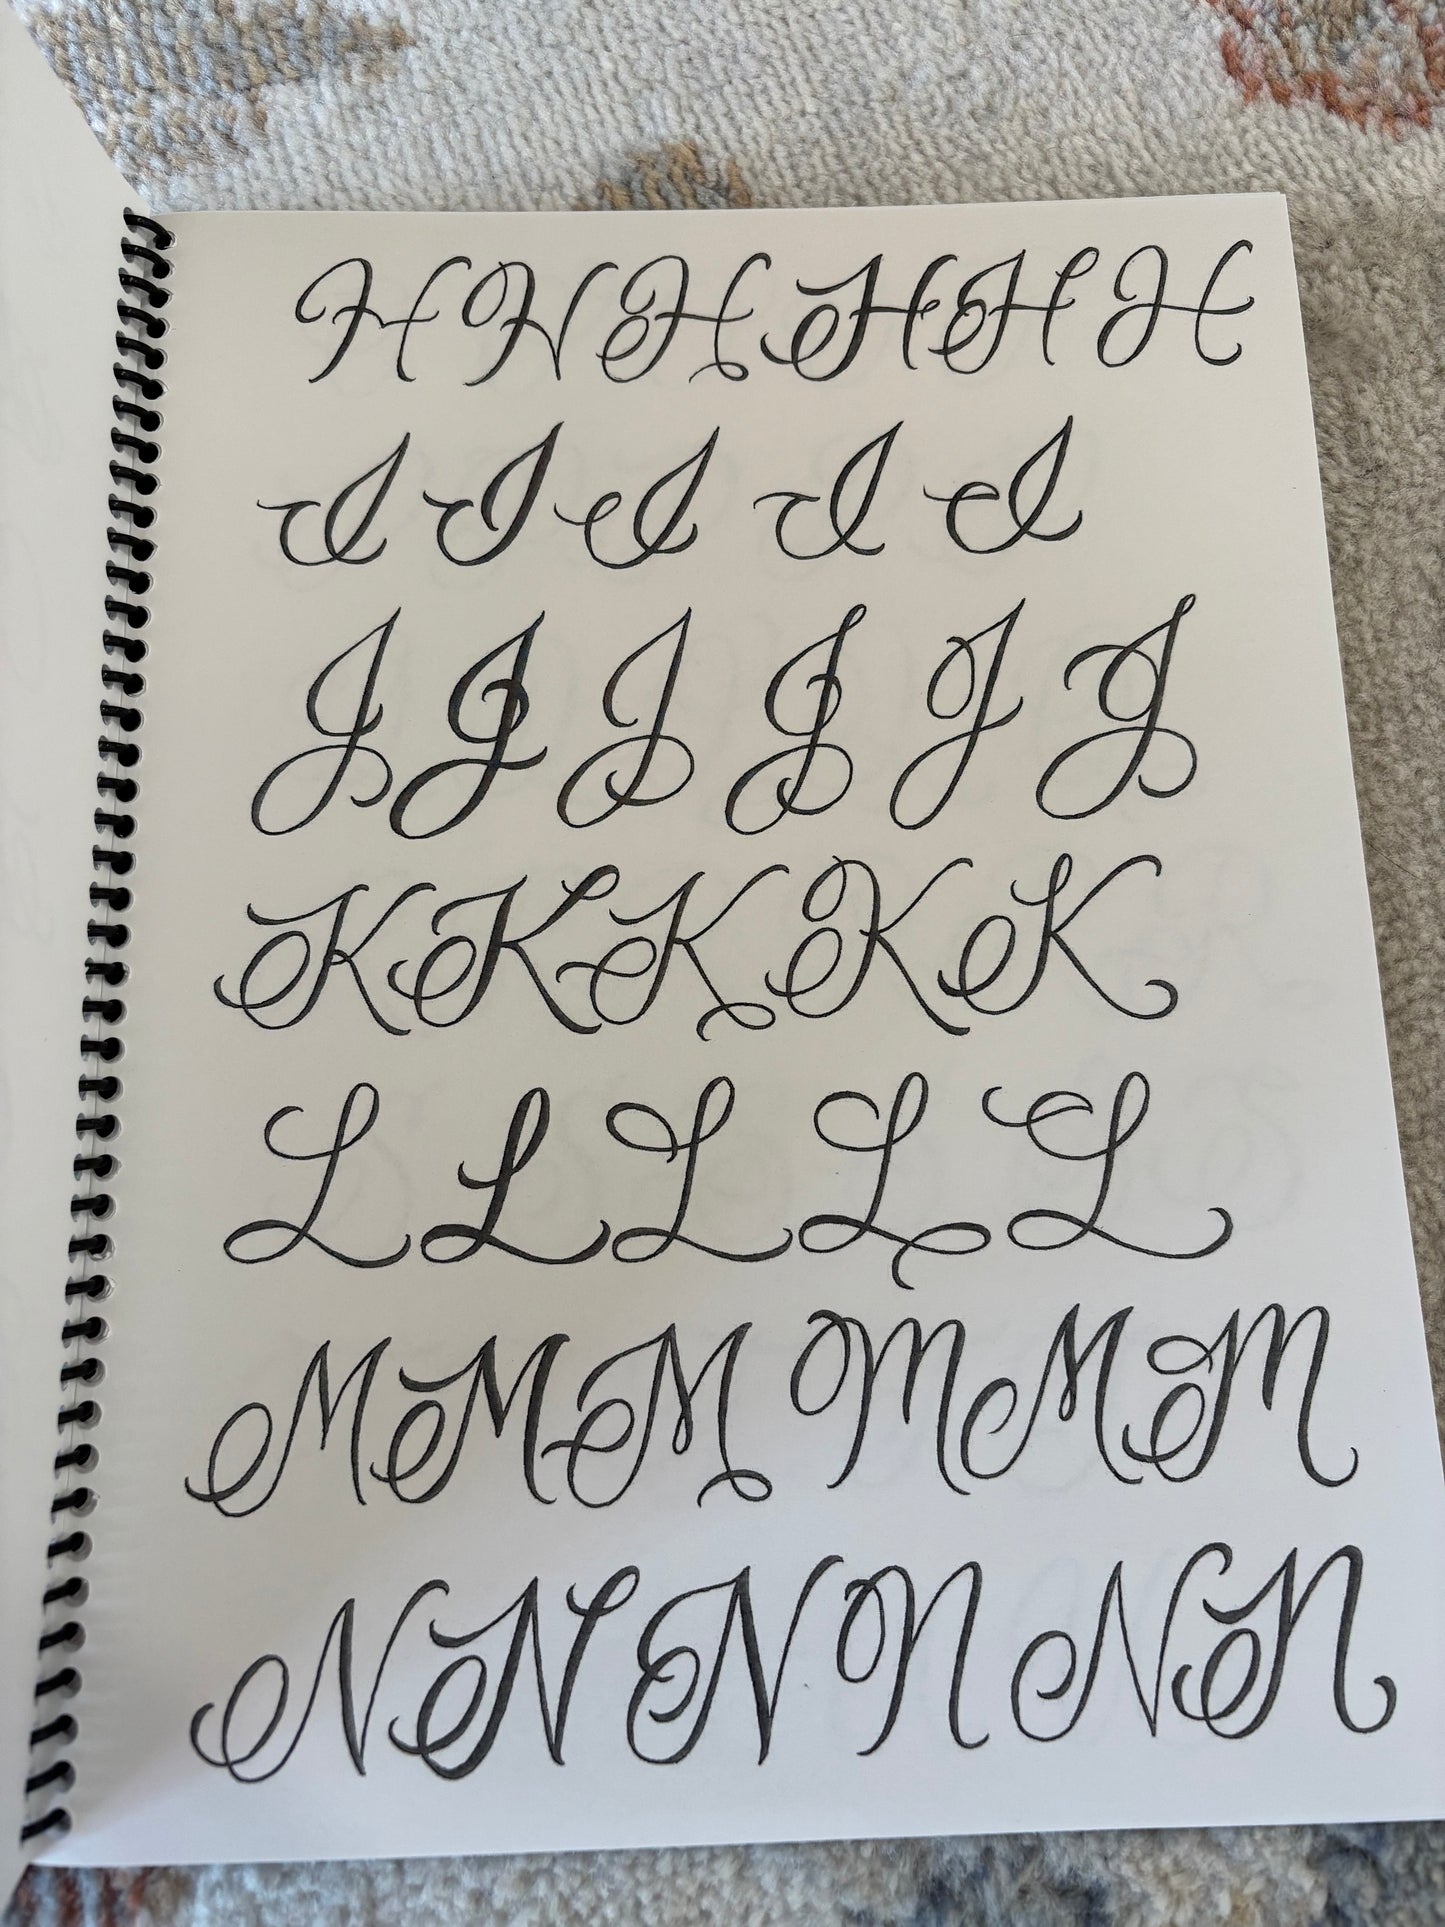 H H H H H H
I I I I I
J J J J J J
K K K K K
L L L L L
M M M M M M
N N N N N N